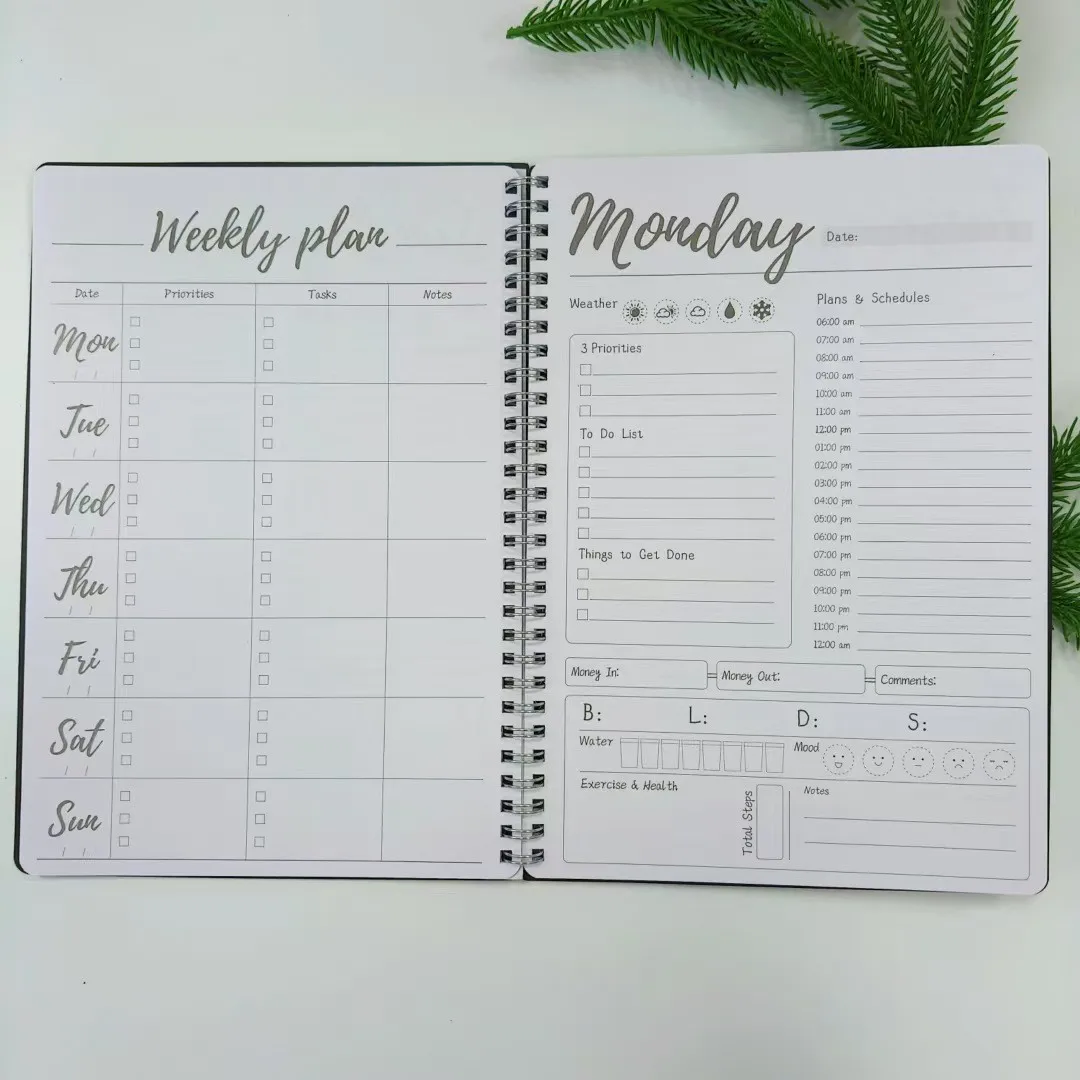 Weekly plan
Date Priorities Tasks Notes
Mon
/ /
Tue
/ /
Wed
/ /
Thu
/ /
Fri
/ /
Sat
/ /
Sun
/ /
Monday
Date:
Weather
3 Priorities
To Do List
Things to Get Done
Plans & Schedules
06:00 am
07:00 am
08:00 am
09:00 am
10:00 am
11:00 am
12:00 pm
01:00 pm
02:00 pm
03:00 pm
04:00 pm
05:00 pm
06:00 pm
07:00 pm
08:00 pm
09:00 pm
10:00 pm
11:00 pm
12:00 am
Money In: Money Out: Comments:
B: L: D: S:
Water Mood
Exercise & Health
Total Steps
Notes